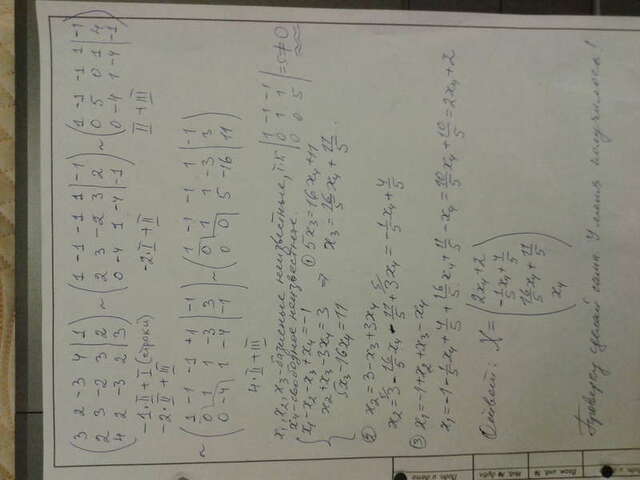 (3 2 -3 4 | 1; 2 3 -2 3 | 2; 4 2 -3 2 | 3) ~ (1 -1 -1 1 | -1; 2 3 -2 3 | 2; 0 -4 1 -4 | -1) ~ (1 -1 -1 1 | -1; 0 5 0 1 | 4; 0 -4 1 -4 | -1)
-1·II+I (строки)
-2·II+III
-2·I+II
II+III
~ (1 -1 -1 +1 | -1; 0 1 1 -3 | 3; 0 -4 1 -4 | -1) ~ (1 -1 -1 1 | -1; 0 1 1 -3 | 3; 0 0 5 -16 | 11)
4·II+III
x1, x2, x3 - базисные неизвестные, т.к. |1 -1 -1; 0 1 1; 0 0 5| = ≠0
x4 - свободное неизвестное.
x1-x2-x3+x4=-1
x2+x3-3x4=3
5x3-16x4=11
① 5x3=16x4+11
⇒ x3=16/5x4+11/5.
② x2=3-x3+3x4
x2=3-16/5x4-11/5+3x4=-1/5x4+4/5
③ x1=-1+x2+x3-x4
x1=-1-1/5x4+4/5+16/5x4+11/5-x4=10/5x4+10/5=2x4+2
Ответ: X=(2x4+2; -1/5x4+4/5; 16/5x4+11/5; x4)
Проверку сделай сама. У меня получилось!